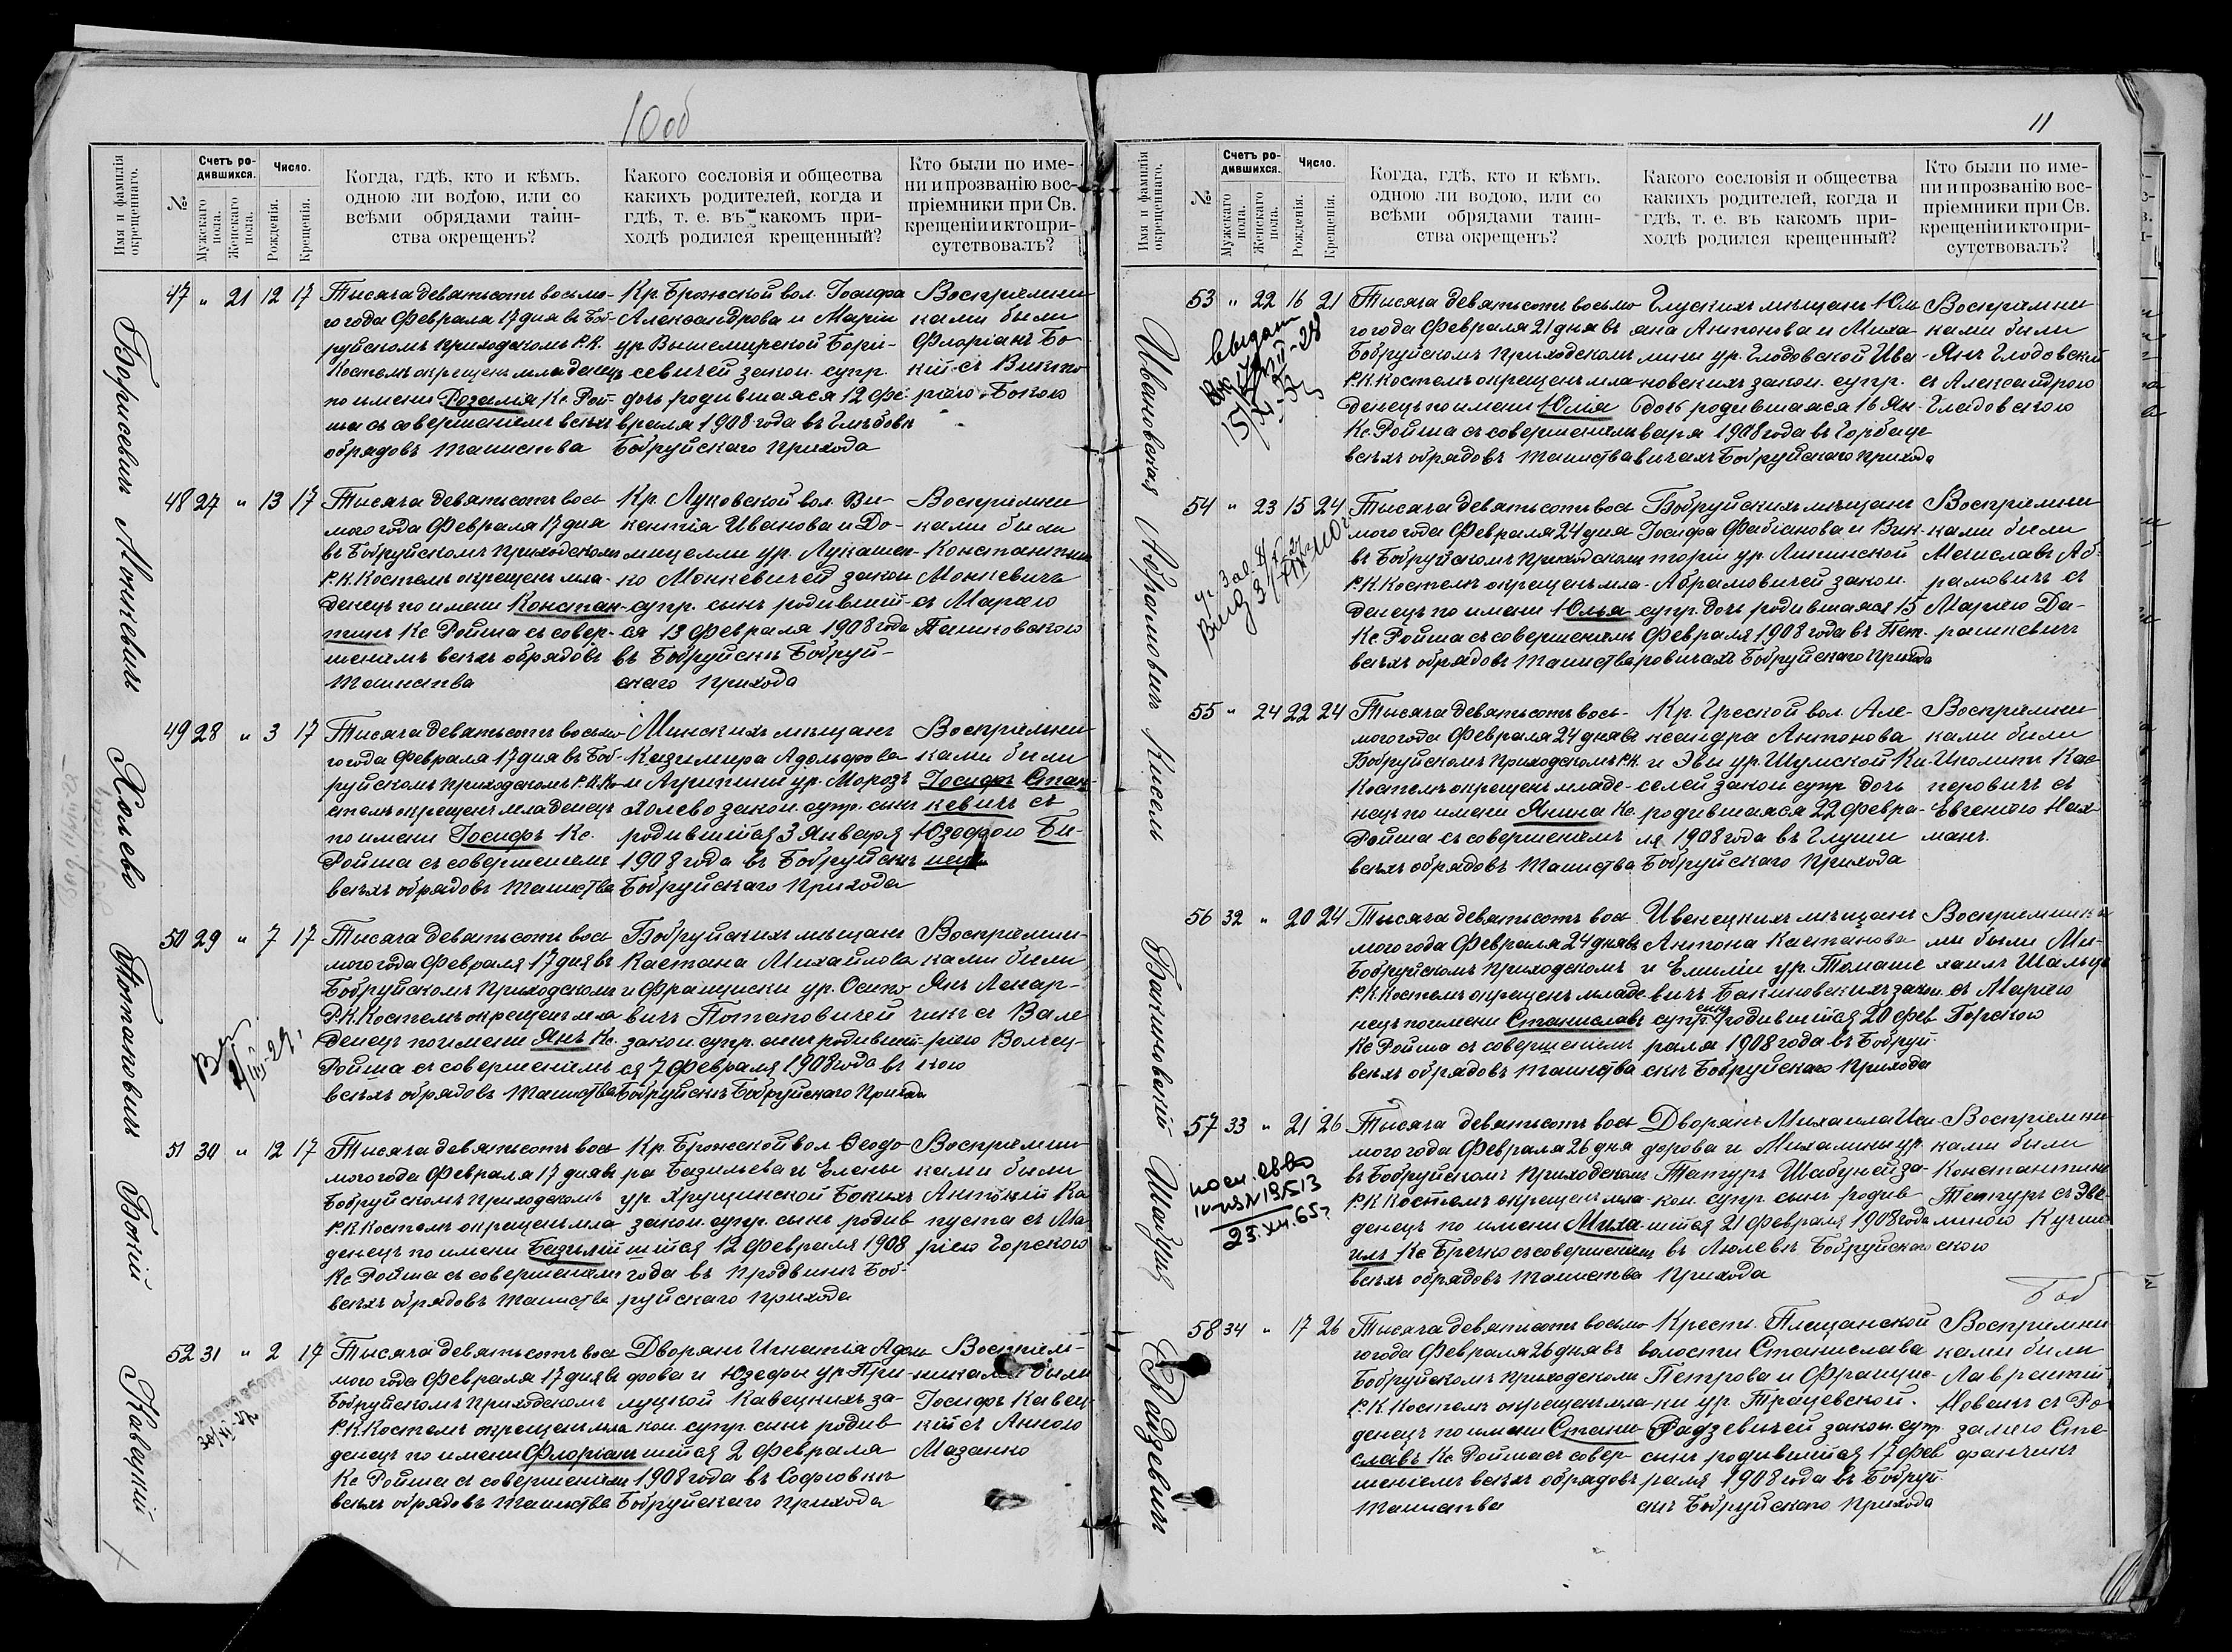 10об
Имя и фамилія окрещеннаго.
№
Счетъ родившихся.
Мужскаго пола.
Женскаго пола.
Число.
Рожденія.
Крещенія.
Когда, гдѣ, кто и кѣмъ.
одною ли водою, или со
всѣми обрядами таин-
ства окрещенъ?
Какого сословія и общества
какихъ родителей, когда и
гдѣ, т. е. въ какомъ при-
ходѣ родился крещенный?
Кто были по име-
ни и прозванію вос-
пріемники при Св.
крещеніи и кто при-
сутствовалъ?
Борисевичъ
47 " 21 12 17
Тысяча девятьсотъ восьмо-
го года Февраля 17 дня въ Боб-
руйскомъ приходскомъ Р.К.
Костелѣ окрещенъ младенецъ
по имени Розалія Кс. Рой-
ша съ совершеніемъ всѣхъ
обрядовъ таинства
Кр. Брожской вол. Іосифа
Александрова и Маріи
ур. Вышемирской Бори-
севичей закон. супр.
дочь родившаяся 12 фе-
враля 1908 года въ Глѣбовѣ
Бобруйскаго прихода
Воспріемни-
ками были
Флоріанъ Бо-
кій съ Викто-
ріею Бокою
Монкевичъ
48 27 " 13 17
Тысяча девятьсотъ вось
мого года Февраля 17 дня
въ Бобруйскомъ приходскомъ
Р.К. Костелѣ окрещенъ мла-
денецъ по имени Констан-
тинъ Кс. Ройша съ совер-
шеніемъ всѣхъ обрядовъ
таинства
Кр. Луковской вол. Ви-
кентія Иванова и До-
мицеллы ур. Лукашен-
ко Монкевичей закон
супр. сынъ родивший-
ся 13 Февраля 1908 года
въ Бобруйскѣ Бобруй-
скаго прихода
Воспріемни
ками были
Константинъ
Монкевичъ
съ Маріею
Пашковскою
Холево
49 28 " 3 17
Тысяча девятьсотъ восьмо-
го года Февраля 17 дня въ Боб-
руйскомъ приходскомъ Р.К. Ко-
стелѣ окрещенъ младенецъ
по имени Іосифъ Кс.
Ройша съ совершеніемъ
всѣхъ обрядовъ таинства
Минскихъ мѣщанъ
Казимира Адольфова
и Агрипины ур. Морозъ
Холево закон. супр. сынъ
родившійся 3 Января
1908 года въ Бобруйскѣ
Бобруйскаго прихода
Воспріемни-
ками были
Іосифъ Стан-
кевичъ съ
Юзефою Би-
Потаповичъ
50 29 " 7 17
Тысяча девятьсотъ вось
мого года Февраля 17 дня въ
Бобруйскомъ приходскомъ
Р.К. Костелѣ окрещенъ мла
денецъ по имени Янъ Кс.
Ройша съ совершеніемъ
всѣхъ обрядовъ таинства
Бобруйскихъ мѣщанъ
Каетана Михайлова
и Францишки ур. Осипо
вичъ Потаповичей
закон. супр. сынъ родивший-
ся 7 Февраля 1908 года въ
Бобруйскѣ Бобруйскаго прихода
Воспріемни-
ками были
Янъ Ленар-
чикъ съ Вале
ріею Волчец-
кою
Бокій
51 30 " 12 17
Тысяча девятьсотъ вось
мого года Февраля 17 дня въ
Бобруйскомъ приходскомъ
Р.К. Костелѣ окрещенъ мла
денецъ по имени Базилій
Кс. Ройша съ совершеніемъ
всѣхъ обрядовъ таинства
Кр. Брожской вол. Ѳеодо
ра Базильева и Елены
ур. Хрущинской Бокихъ
закон. супр. сынъ родив
шійся 12 Февраля 1908
года въ Продвинѣ Боб-
руйскаго прихода
Воспріемни
ками были
Антоній Ка
пуста съ Ма
ріею Горскою
Кавецкій
52 31 " 2 17
Тысяча девятьсотъ вось
мого года Февраля 17 дня въ
Бобруйскомъ приходскомъ
Р.К. Костелѣ окрещенъ мла
денецъ по имени Флоріанъ
Кс. Ройша съ совершеніемъ
всѣхъ обрядовъ таинства
Дворянъ Игнатія Адоль
фова и Юзефы ур. При-
луцкой Кавецкихъ за-
кон. супр. сынъ родив
шійся 2 Февраля
1908 года въ Софіовкѣ
Бобруйскаго прихода
Воспріем-
никами были
Іосифъ Кавец-
кій съ Анною
Мазанко
11
Имя и фамилія окрещеннаго.
№
Счетъ родившихся.
Мужскаго пола.
Женскаго пола.
Число.
Рожденія.
Крещенія.
Когда, гдѣ, кто и кѣмъ.
одною ли водою, или со
всѣми обрядами таин-
ства окрещенъ?
Какого сословія и общества
какихъ родителей, когда и
гдѣ, т. е. въ какомъ при-
ходѣ родился крещенный?
Кто были по име-
ни и прозванію вос-
пріемники при Св.
крещеніи и кто при-
сутствовалъ?
Ивановская
53 " 22 16 21
Тысяча девятьсотъ восьмо
го года Февраля 21 дня въ
Бобруйскомъ приходскомъ
Р.К. Костелѣ окрещенъ мла-
денецъ по имени Юлія
Кс. Ройша съ совершеніемъ
всѣхъ обрядовъ таинства
Глускихъ мѣщанъ Юли
ана Антонова и Миха-
лины ур. Глодовской Ива-
новскихъ закон. супр.
дочь родившаяся 16 Ян-
варя 1908 года въ Горбаце
вичахъ Бобруйскаго прихода
Воспріемни
ками были
Янъ Глодовскій
съ Александрою
Глодовскою
Абрамовичъ
54 " 23 15 24
Тысяча девятьсотъ вось
мого года Февраля 24 дня
въ Бобруйскомъ приходскомъ
Р.К. Костелѣ окрещенъ мла-
денецъ по имени Юлья
Кс. Ройша съ совершеніемъ
всѣхъ обрядовъ таинства
Бобруйскихъ мѣщанъ
Іосифа Фабіанова и Вик-
торіи ур. Липинской
Абрамовичей закон.
супр. дочь родившаяся 15
Февраля 1908 года въ Пет-
ровичахъ Бобруйскаго прихода
Воспріемни
ками были
Мечиславъ Аб-
рамовичъ съ
Маріею Да-
рашкевичъ
Кисель
55 " 24 22 24
Тысяча девятьсотъ вось-
мого года Февраля 24 дня въ
Бобруйскомъ приходскомъ Р.К.
Костелѣ окрещенъ младе-
нецъ по имени Янина Кс.
Ройша съ совершеніемъ
всѣхъ обрядовъ таинства
Кр. Греской вол. Але-
ксандра Антонова
и Эвы ур. Шумской Ки-
селей закон супр. дочь
родившаяся 22 Февра-
ля 1908 года въ Глуши
Бобруйскаго прихода
Воспріемни
ками были
Ипполитъ Кас-
перовичъ съ
Евгеніею Нах-
манъ.
Бакиновскій
56 32 " 20 24
Тысяча девятьсотъ вось
мого года Февраля 24 дня въ
Бобруйскомъ приходскомъ
Р.К. Костелѣ окрещенъ младе-
нецъ по имени Станиславъ
Кс Ройша съ совершеніемъ
всѣхъ обрядовъ таинства
Ивенецкихъ мѣщанъ
Антона Каетанова
и Емиліи ур. Томаше
вичъ Бакиновскихъ закон.
супр. сынъ родившійся 20 фев
раля 1908 года въ Бобруй-
скѣ Бобруйскаго прихода
Воспріемника
ми были Ми-
хаилъ Шальцъ
съ Маріею
Горскою
Шабуня
57 33 " 21 26
посл. св-во
23.XII.65г
Тысяча девятьсотъ вось
мого года Февраля 26 дня
въ Бобруйскомъ приходскомъ
Р.К. Костелѣ окрещенъ мла-
денецъ по имени Миха-
илъ Кс Бречко съ совершеніемъ
всѣхъ обрядовъ таинства
Дворянъ Михаила Иси-
дорова и Михалины ур.
Тетуръ Шабуней за-
кон. супр. сынъ родив
шійся 21 Февраля 1908 года
въ Люлевѣ Бобруйскаго
прихода
Воспріемни-
ками были
Константинъ
Тетуръ съ Эве-
линою Кучин
скою
Радзевичъ
58 34 " 17 26
Тысяча девятьсотъ восьмо
го года Февраля 26 дня въ
Бобруйскомъ приходскомъ
Р.К. Костелѣ окрещенъ мла-
денецъ по имени Стани-
славъ Кс Ройша съ совер-
шеніемъ всѣхъ обрядовъ
таинства
Крестн. Плещанской
волости Станислава
Петрова и Францис-
ки ур. Трацевской.
Радзевичей закон. супр.
сынъ родившійся 17 фев
раля 1908 года въ Бобруй-
скѣ Бобруйскаго прихода
Воспріемни
ками были
Лаврентій
Новакъ съ Ро-
заліею Сте-
фанчикъ